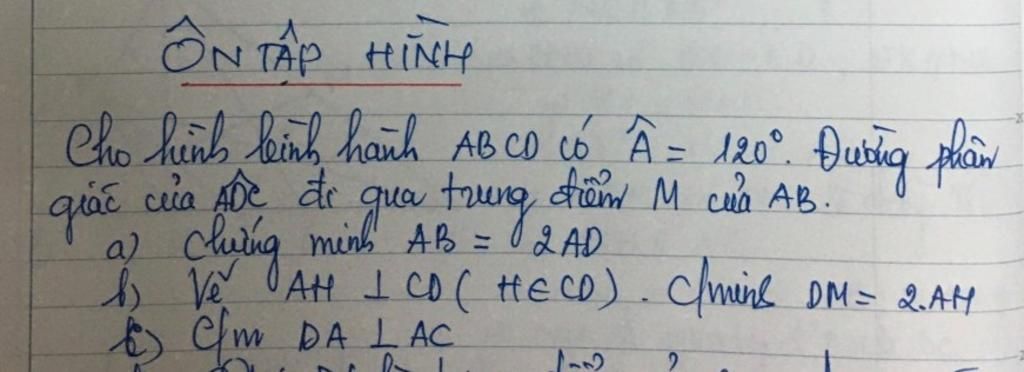 ÔN TẬP HÌNH
Cho hình bình hành ABCD có Â = 120°. Đường phân
giác của ADC đi qua trung điểm M của AB.
a) Chứng minh AB = 2AD
b) Vẽ AH ⊥ CD ( H ∈ CD ) . C/minh DM = 2.AH
c) C/m DA ⊥ AC